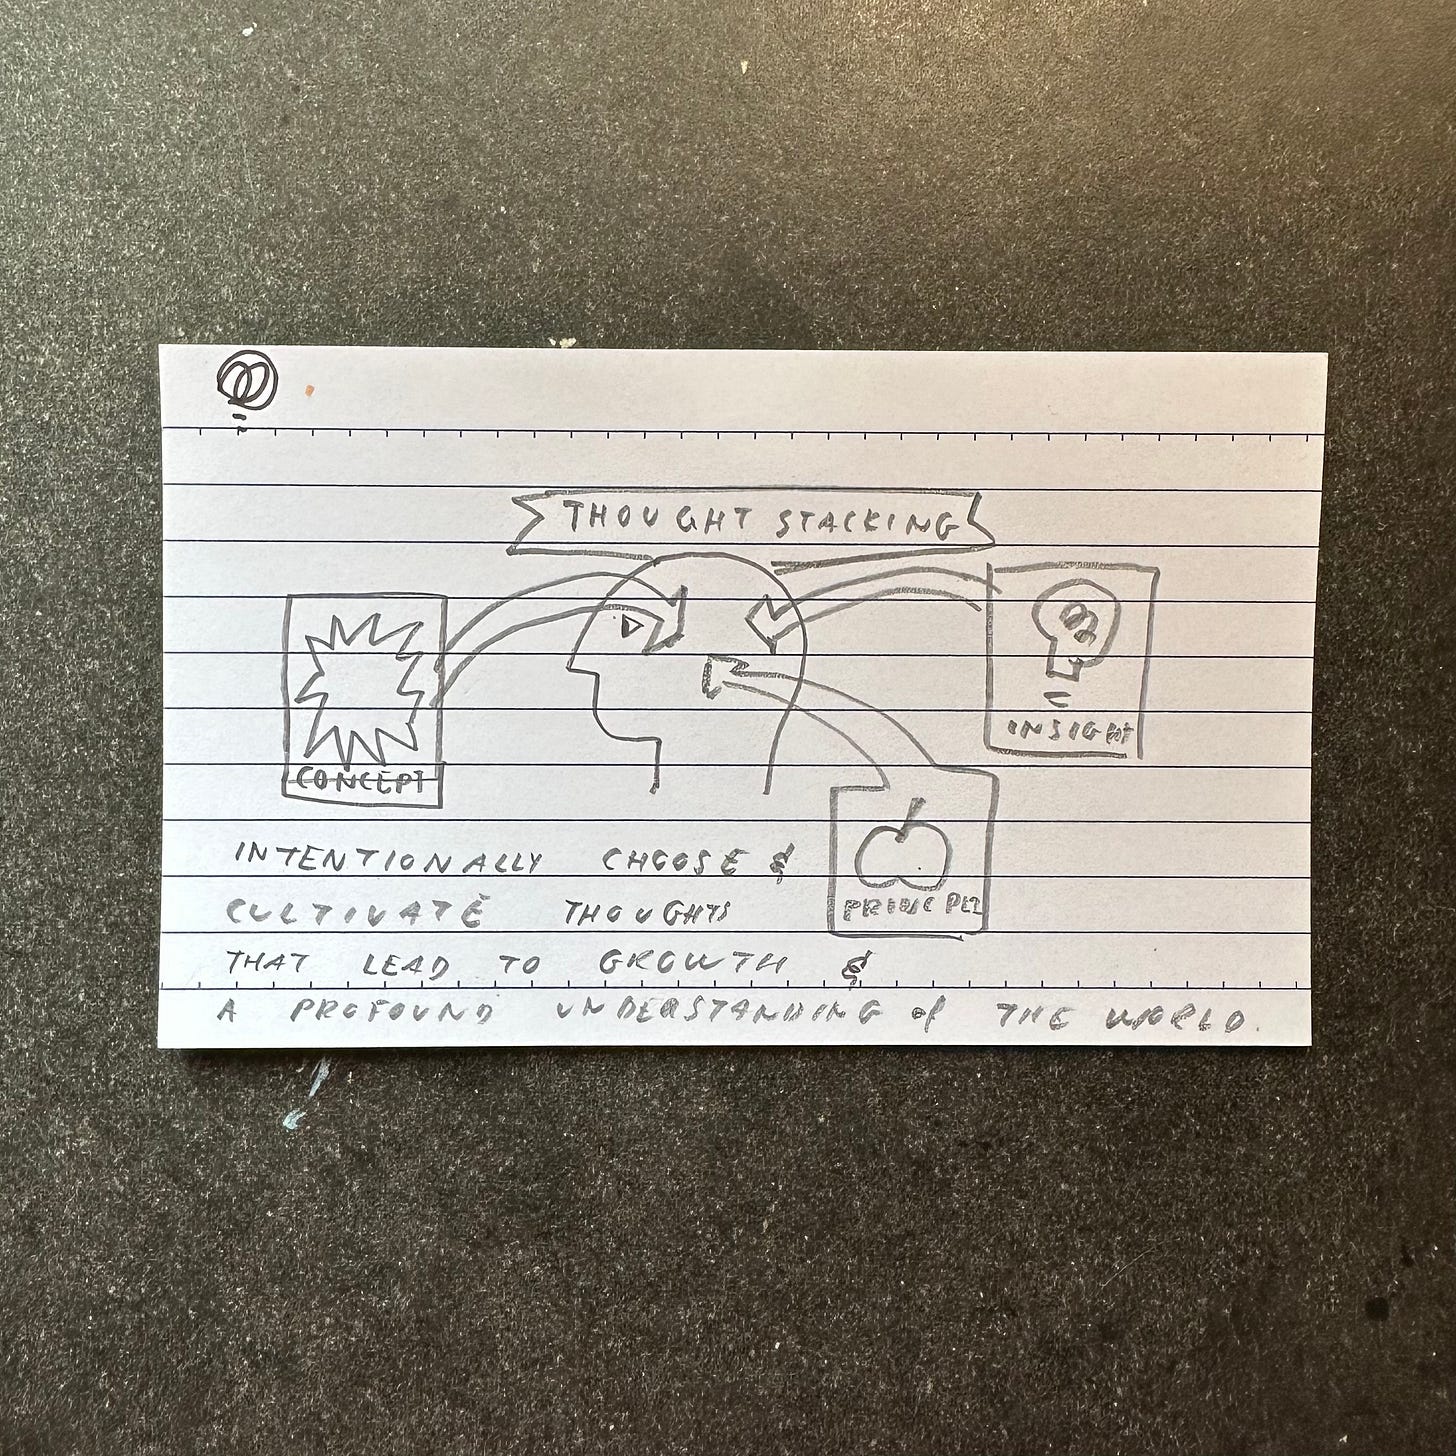 THOUGHT STACKING
CONCEPT
INSIGHT
PRINCIPLE
INTENTIONALLY CHOOSE &
CULTIVATE THOUGHTS
THAT LEAD TO GROWTH &
A PROFOUND UNDERSTANDING of THE WORLD.